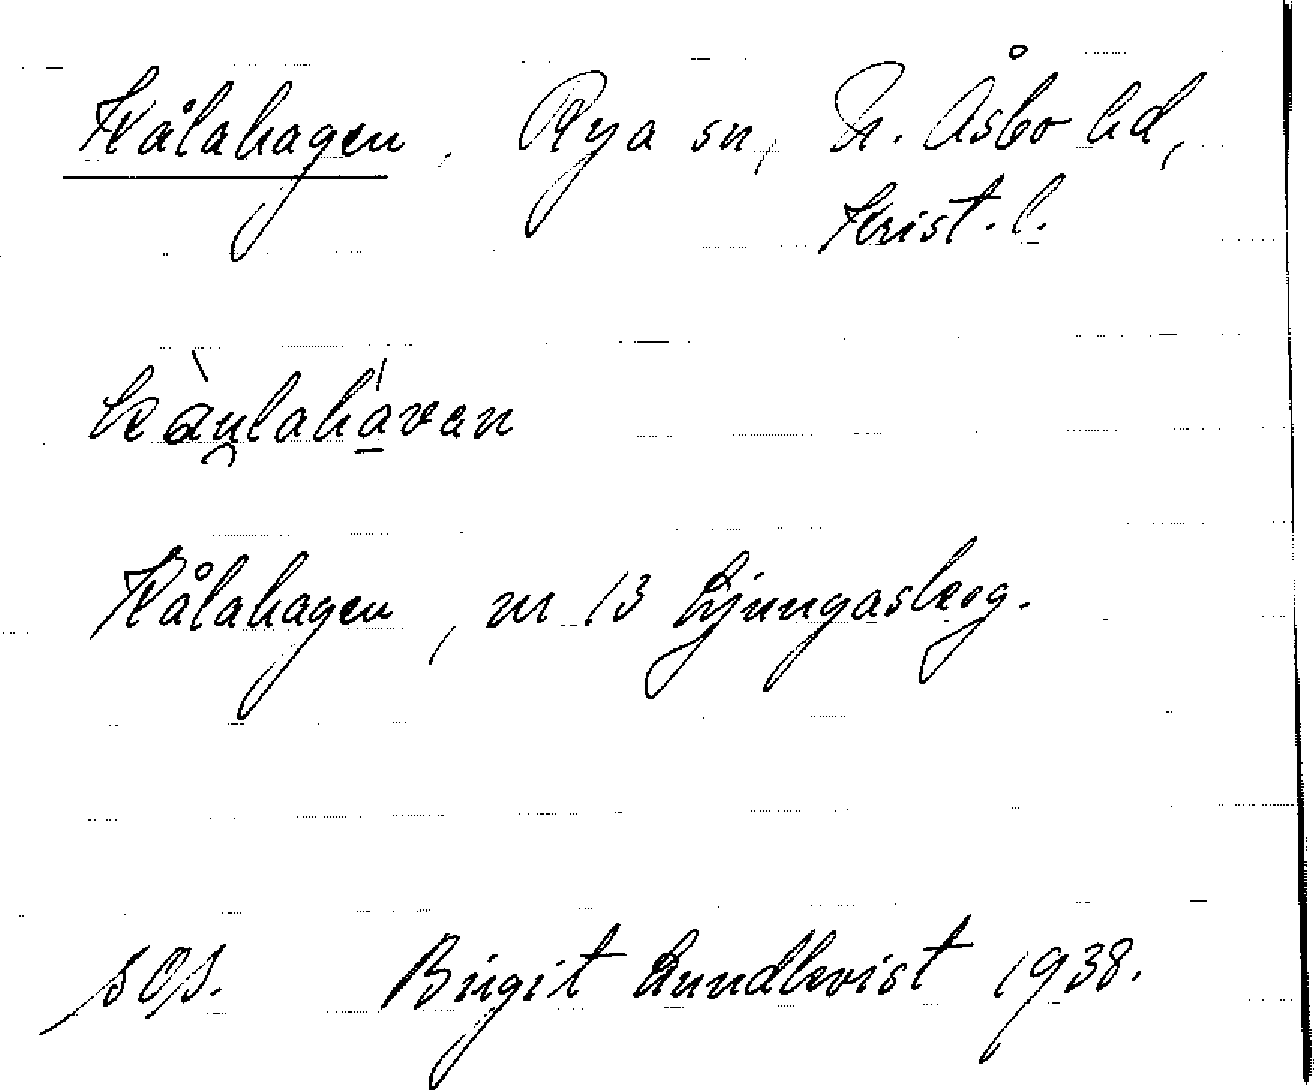 Kålahagen, Rya sn, N. Åsbo hd,
Krist. l.
kàu̯lahá̱van
Kålahagen, nr 13 Ljungaskog.
sOs. Birgit Lundkvist 1938.